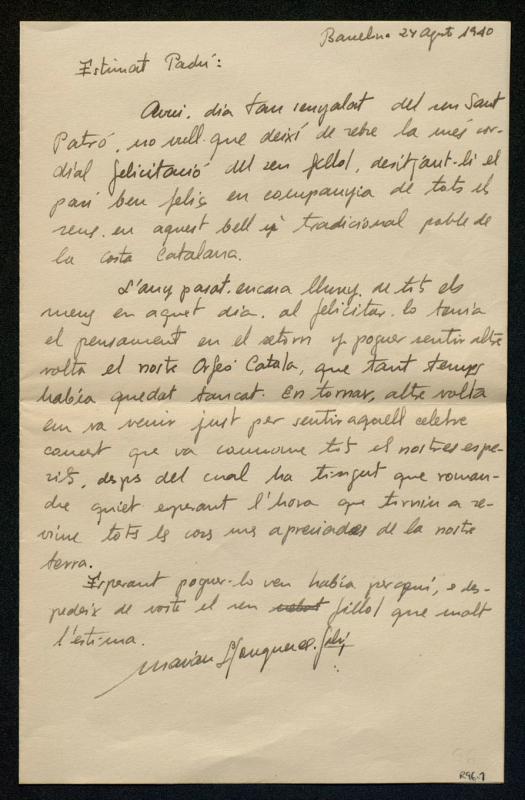 Barcelona 24 Agost 1940
Estimat Padrí:
Avui, dia tan senyalat del seu Sant
Patró, no vull que deixi de rebre la més cor-
dial felicitació del seu fillol, desitjant-li el
pasi ben feliç en companyia de tots els
seus, en aquest bell i tradicional poble de
la costa Catalana.
L'any pasat, encara lluny de tots els
meus en aquet dia, al felicitar-lo tenia
el pensament en el retorn y poguer sentir altre
volta el nostre Orfeó Català, que tant temps
había quedat tancat. En tornar, altre volta
em va venir just per sentir aquell celebre
concert que va commoure tots els nostres espe-
rits, desps del cual ha tingut que roman-
dre quiet esperant l'hora que tornin a re-
viure tots les cors mes apreciades de la nostre
terra.
Esperant poguer-lo veu había perquí, e des-
pedeix de vosté el seu fillol que molt
l'estima.
R96.7